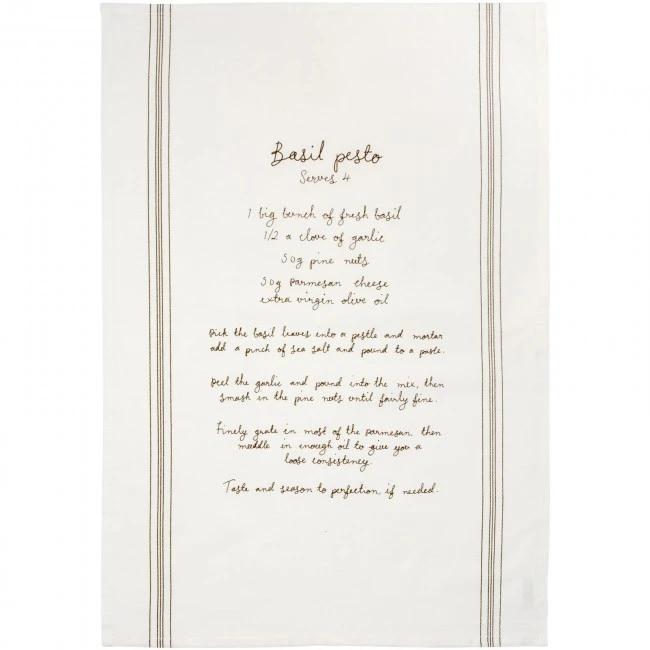 Basil pesto
Serves 4
1 big bunch of fresh basil
1/2 a clove of garlic
50g pine nuts
50g Parmesan cheese
extra virgin olive oil
Pick the basil leaves into a pestle and mortar
add a pinch of sea salt and pound to a paste.
Peel the garlic and pound into the mix, then
smash in the pine nuts until fairly fine.
Finely grate in most of the Parmesan, then
muddle in enough oil to give you a
loose consistency.
Taste and season to perfection, if needed.